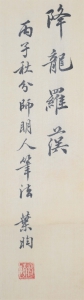 降龍羅漢
丙子社分師明人筆法 葉昫